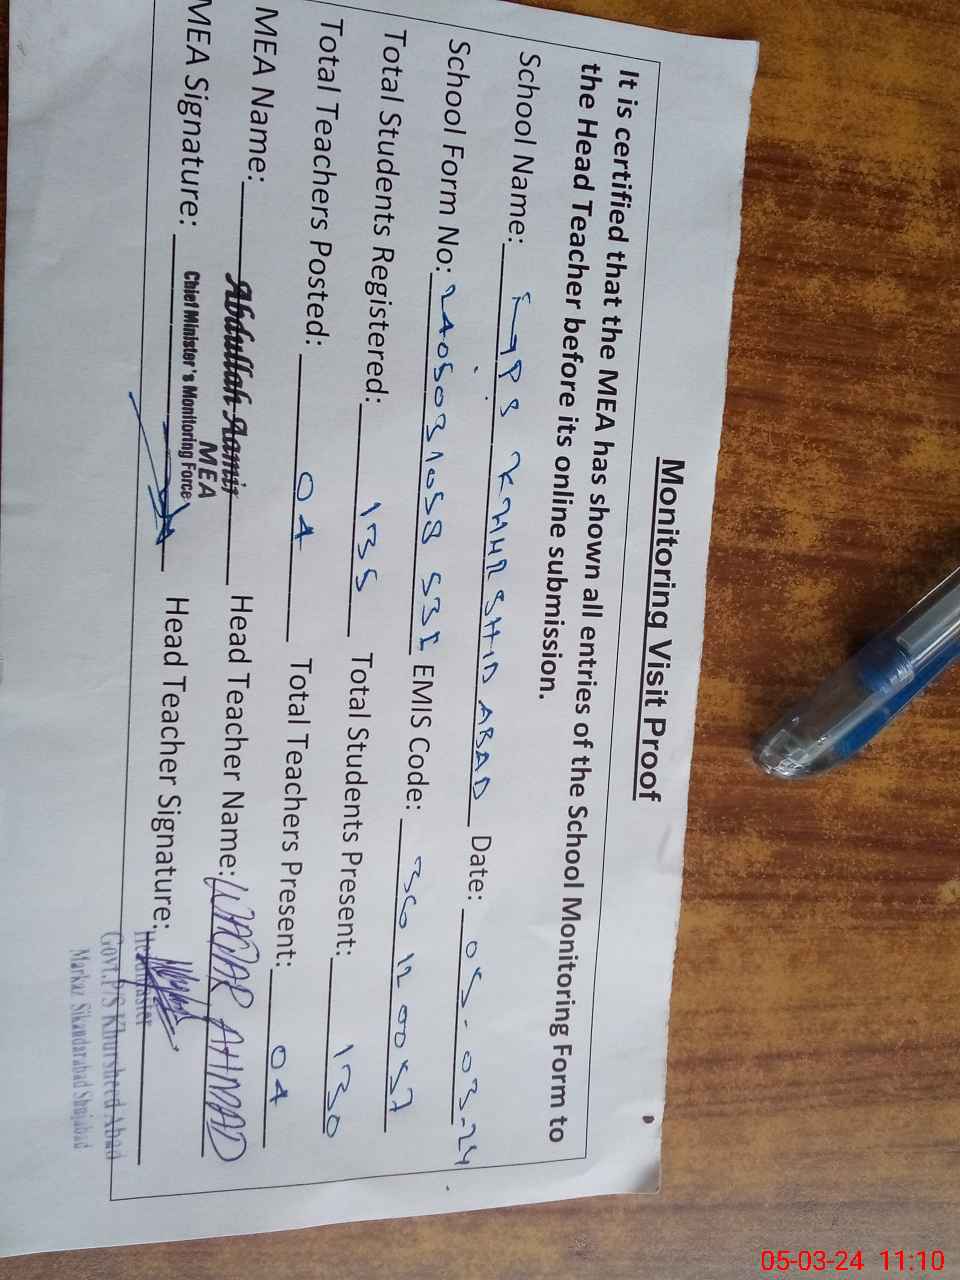 Monitoring Visit Proof
It is certified that the MEA has shown all entries of the School Monitoring Form to
the Head Teacher before its online submission.
School Name: GPS KHURSHID ABAD Date: 05-03-24
School Form No: 2405031058 53 EMIS Code: 36120057
Total Students Registered: 135 Total Students Present: 130
Total Teachers Posted: 04 Total Teachers Present: 04
MEA Name: Abdullah Aamir Head Teacher Name: WAQAR AHMAD
MEA
MEA Signature: Chief Minister's Monitoring Force Head Teacher Signature:
Headmaster
Govt.P/S Khursheed Abad
Markaz Sikandarabad Shujabad
05-03-24 11:10